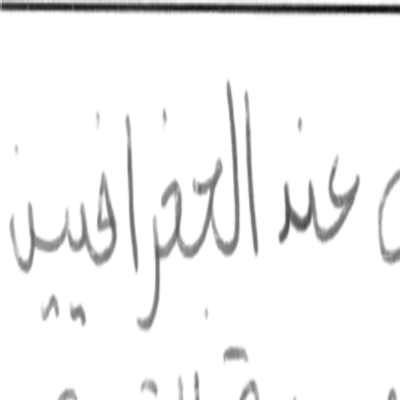 عند الجغرافيين